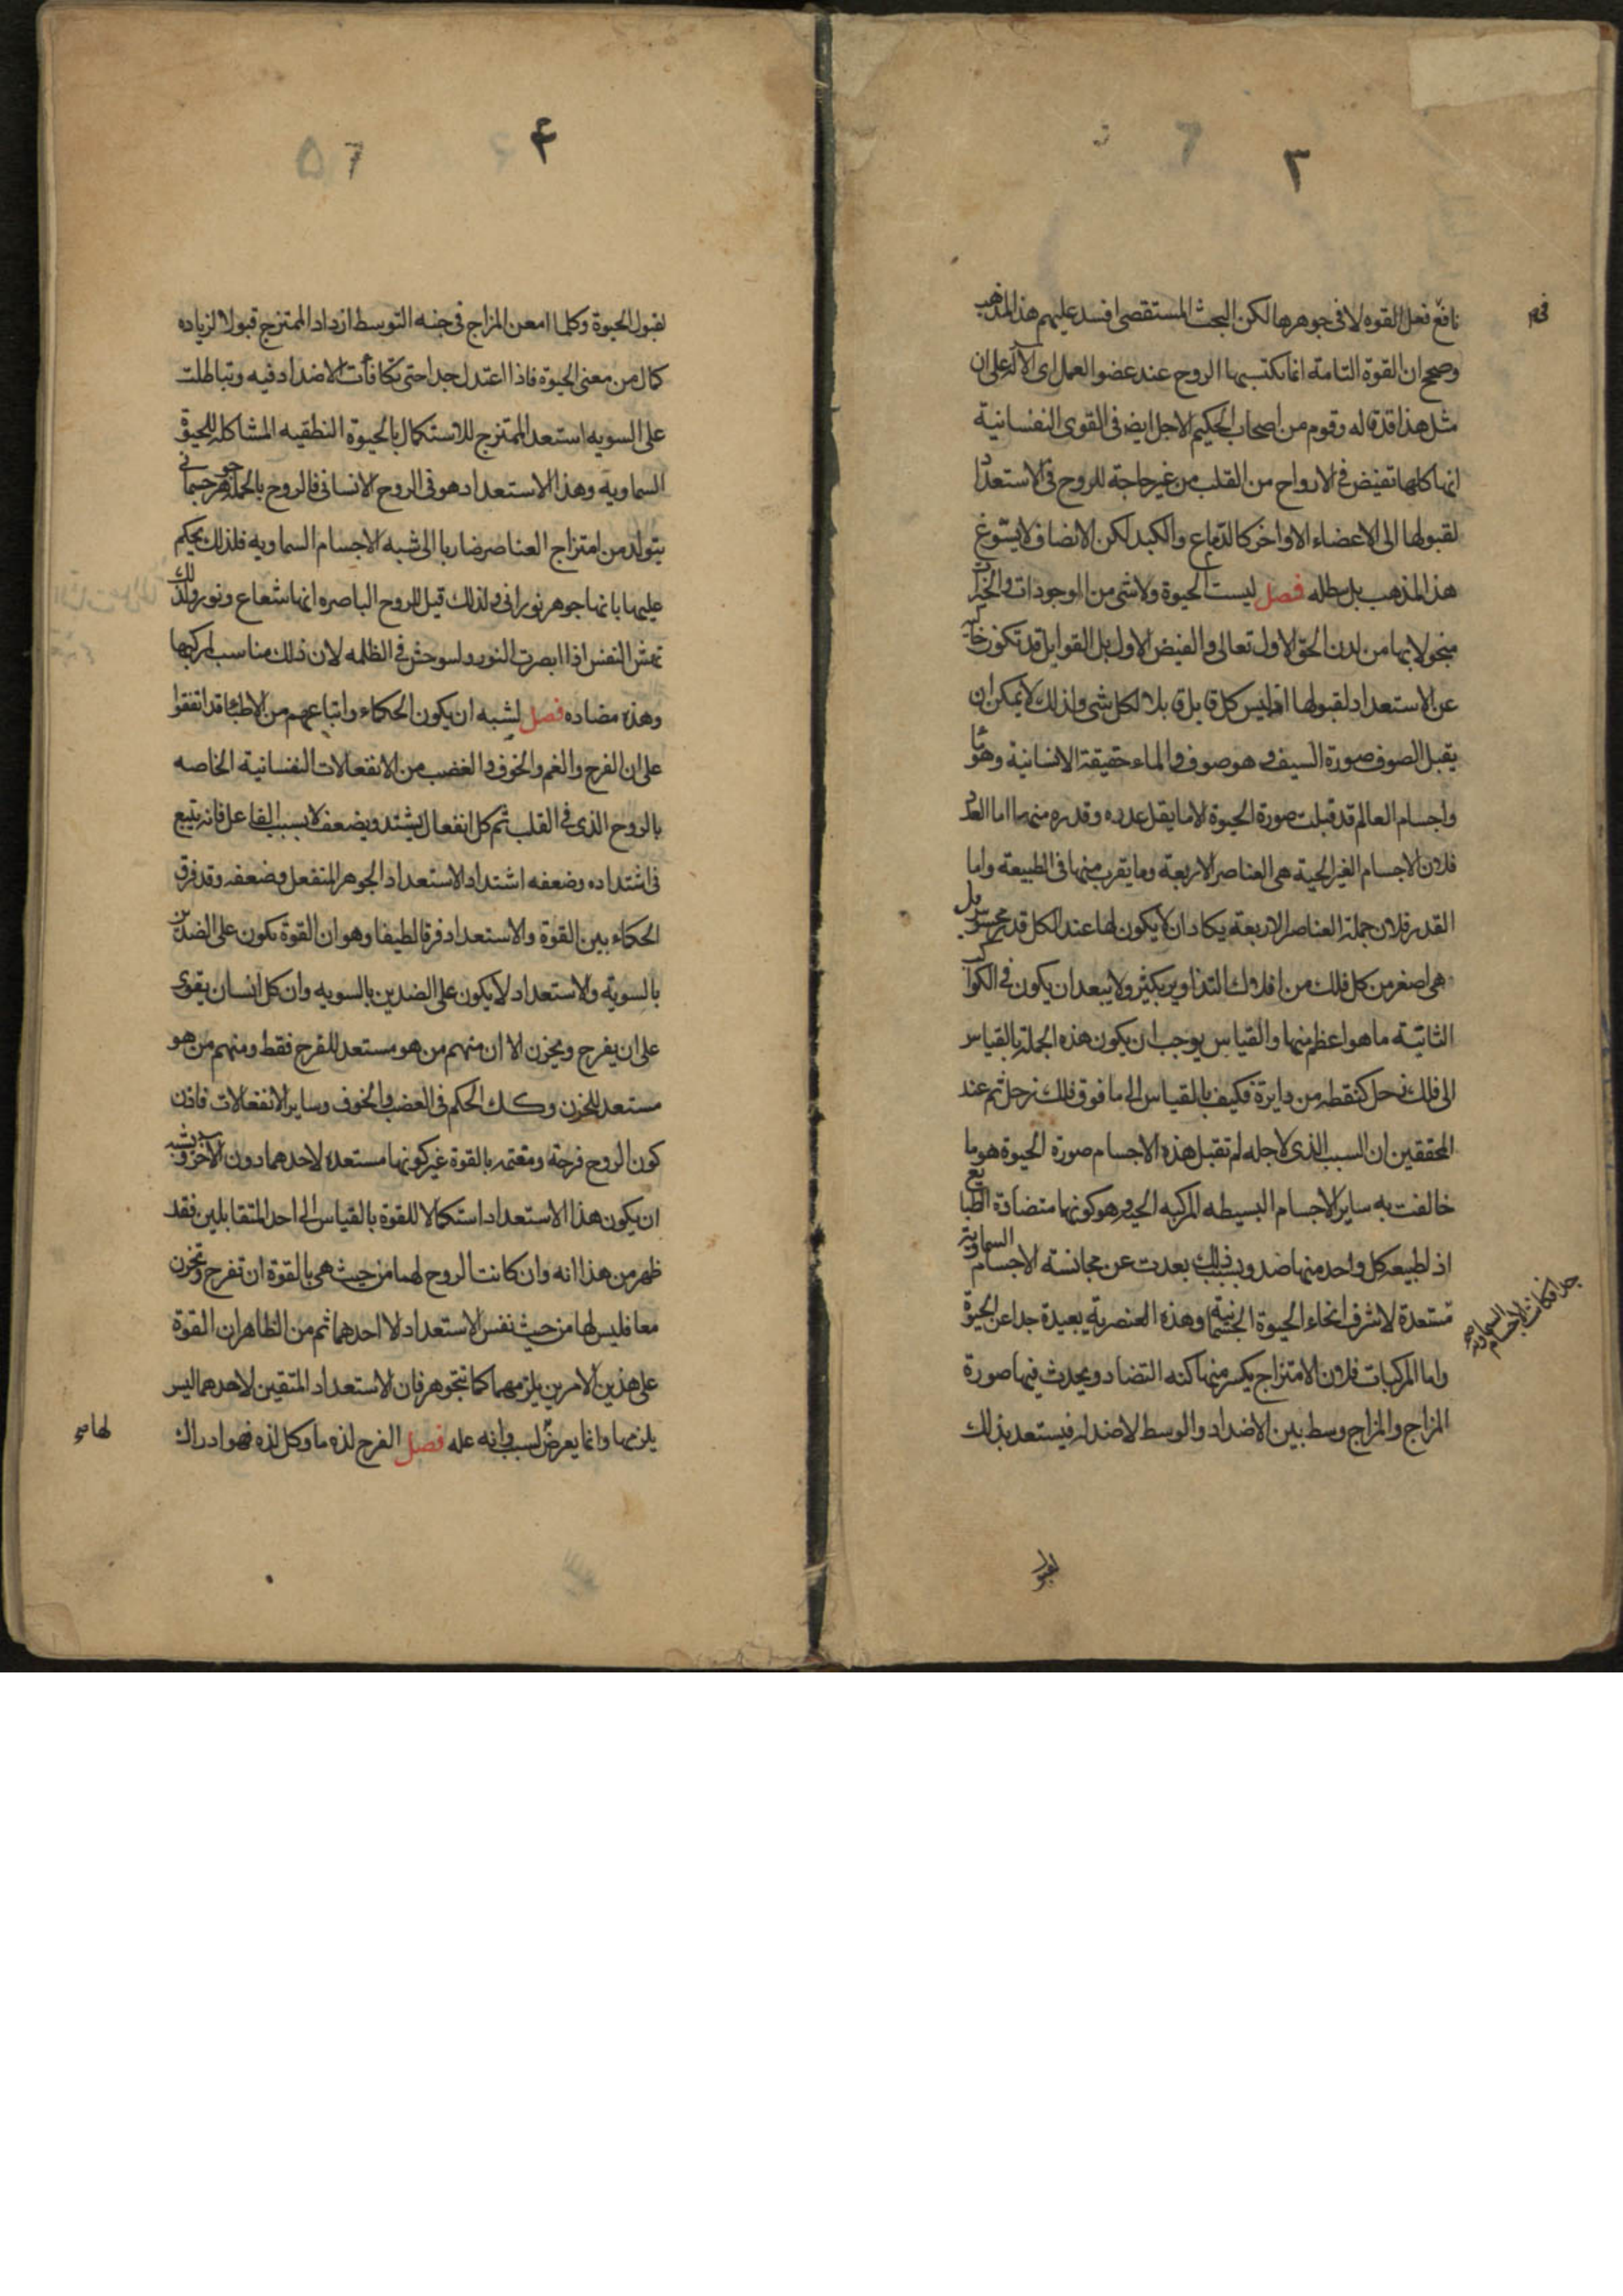 ٣
نافع فعل القوه لا فى جوهرها لكن البحث المستقصى افسد عليهم هذا المذهب
وصحح ان القوة التامة انما تكتسبها الروح عند عضو العمل اى الآلة على ان
مثل هذا قدقاله وقوم من اصحاب الحكيم الاجل ايض فى القوى النفسانية
انها كلها تفيض فى الارواح من القلب من غير حاجة للروح فى الاستعداد
لقبولها الى الاعضاء الاواخر كالدماغ والكبد لكن الانصاف لا يسوغ
هذا المذهب بل يبطله فصل ليست الحيوة ولا شى من الموجودات والخيرات
مبخولا بها من لدن الحق الاول تعالى والفيض الاول بل القوابل قد تكون خالية
عن الاستعداد لقبولها اذ ليس كل قابل قابلا لكل شى ولذلك لا يمكن ان
يقبل الصوف صورة السيف وهو صوف والماء حقيقة الانسانية وهو ماء
واجسام العالم قد قبلت صورة الحيوة الا ما يقل عدده وقدره منها اما العدد
فلان الاجسام الغير الحية هى العناصر الاربعة وما يقرب منها فى الطبيعة واما
القدر فلان جملة العناصر الاربعة يكاد ان لا يكون لها عند الكل قدر محسوس بل
هى اصغر من كل فلك من افلاك التداوير بكثير ولا يبعد ان يكون فى الكواكب
الثابتة ما هو اعظم منها والقياس يوجب ان يكون هذه الجملة بالقياس
الى فلك زحل كنقطه من دايرة فكيف بالقياس الى ما فوق فلك زحل ثم عند
المحققين ان السبب الذى لاجله لم تقبل هذه الاجسام صورة الحيوة هو ما
خالفت به ساير الاجسام البسيطه المركبه الحية وهو كونها متضادة الطبايع
اذ لطبيعه كل واحد منها ضد وبسبب ذلك بعدت عن مجانسة الاجسام السماوية
جدا فكانت الاجسام السماوية صح
مستعدة لاشرف انحاء الحيوة الجسمانية وهذه العنصرية بعيدة جدا عن الحيوة
واما المركبات فلان الامتزاج يكسر منها كنه التضاد ويحدث فيها صورة
المزاج والمزاج وسط بين الاضداد والوسط لا ضد له فيستعد بذلك
لقبول
٤
لقبول الحيوة وكلما امعن المزاج فى جنبه التوسط ازداد الممتزج قبولا لزياده
كمال من معنى الحيوة فاذا اعتدل جدا حتى تكافأت الاضداد فيه وتباطلت
على السويه استعد الممتزج للاستكمال بالحيوة النطقيه المشاكله للحيوة
السماوية وهذا الاستعداد هو فى الروح الانسانى فالروح بالجملة جوهر جسمانى
يتولد من امتزاج العناصر ضاربا الى شبه الاجسام السماويه فلذلك يحكم
عليها بانها جوهر نورانى ولذلك قيل للروح الباصره انها شعاع ونور ولذلك
تهش النفس اذا ابصرت النور وتستوحش فى الظلمه لان ذلك مناسب لمركبها
وهذه مضاده فصل يشبه ان يكون الحكماء واتباعهم من الاطباء قد اتفقوا
على ان الفرح والغم والخوف والغضب من الانفعالات النفسانية الخاصه
بالروح الذى فى القلب ثم كل انفعال يشتد ويضعف لا بسبب الفاعل فانه يتبع
فى اشتداده وضعفه اشتداد الاستعداد الجوهر المنفعل وضعفه وقد فرق
الحكماء بين القوة والاستعداد فرقا لطيفا وهو ان القوة تكون على الضدين
بالسوية والاستعداد لا يكون على الضدين بالسويه وان كل انسان يقوى
على ان يفرح ويحزن الا ان منهم من هو مستعد للفرح فقط ومنهم من هو
مستعد للحزن وكذلك الحكم فى الغضب والخوف وساير الانفعالات فاذن
كون الروح فرحة ومغتمه بالقوة غير كونها مستعده لاحدهما دون الآخر ويشبه
ان يكون هذا الاستعداد استكمالا للقوة بالقياس الى احد المتقابلين فقد
ظهر من هذا انه وان كانت الروح لهما من حيث هى بالقوة ان تفرح وتحزن
معا فليس لها من حيث نفس الاستعداد الا احدهما ثم من الظاهر ان القوة
على هذين الامرين يلزمهما كما تتجوهر فان الاستعداد المتقين لاحدهما ليس
يلزمها وانما يعرض لسبب وانه عله فصل الفرح لذه ما وكل لذه فهو ادراك
لها صح